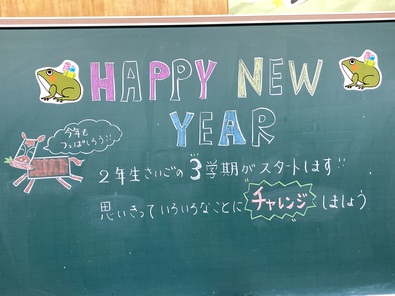 HAPPY NEW
YEAR
今年も
つっぱしろう!!
2年生さいごの3学期がスタートします!!
思いきっていろいろなことにチャレンジしましょう